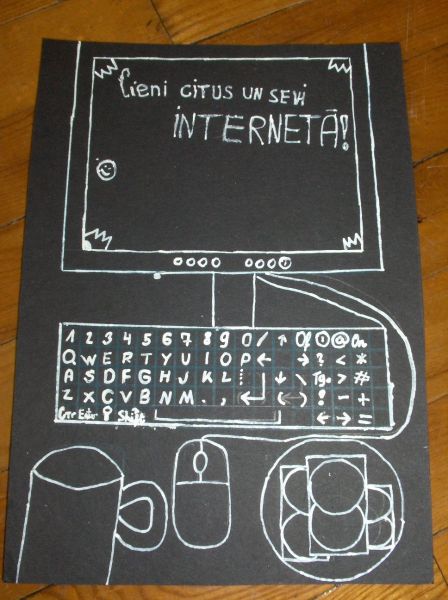 Cieni CITUS UN SEVI
INTERNETĀ!
1 2 3 4 5 6 7 8 9 0 / ↑
Q W E R T Y U I O P ← → ? < *
A S D F G H J K L ↓ \ > #
Z X C V B N M . , ! - +
Shift ← → =